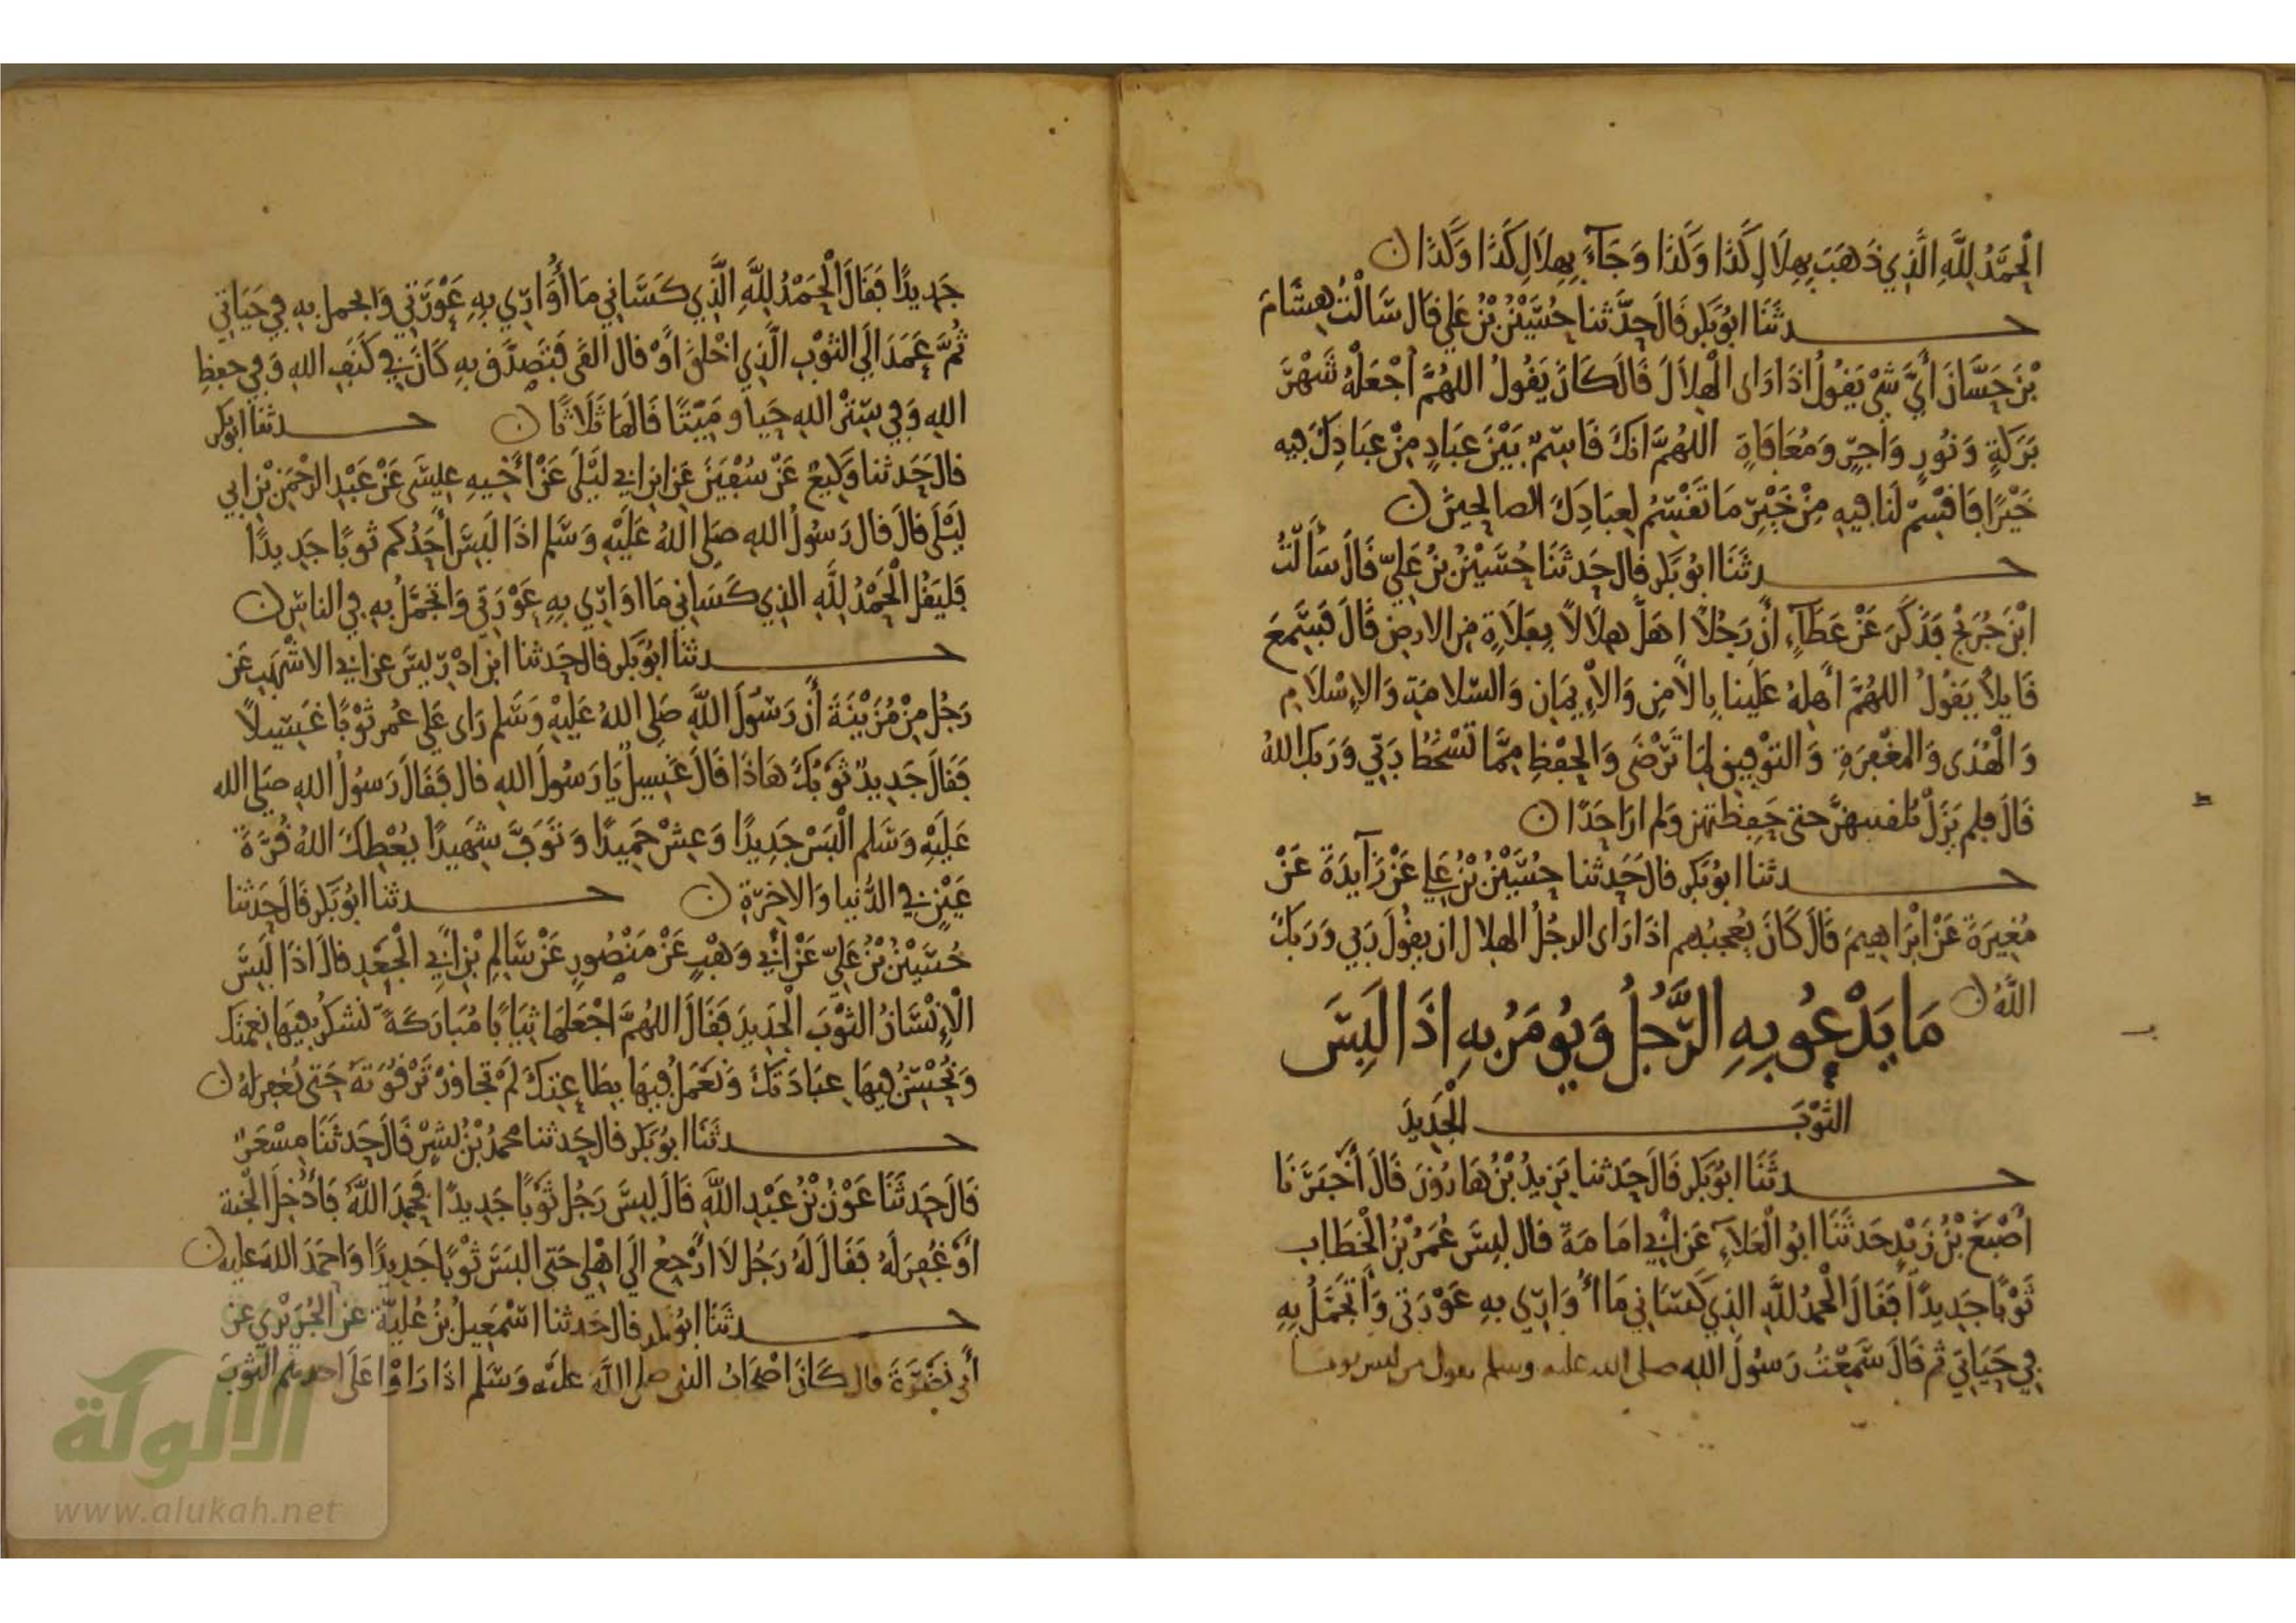 الْحَمْدُ لِلَّهِ الَّذِي ذَهَبَ بِهِلَالِ كَذَا وَكَذَا وَجَاءَ بِهِلَالِ كَذَا وَكَذَا ن
حدثَنَا ابُو بَكر قَالَ حَدَّثنا حُسَيْنُ بْنُ عَلي قال سَالْتُ هِشَامَ
بْنَ حَسَّانَ أَيَّ شيْ يَقُولُ اذَا رَاى الْهِلَالَ قَالَ كَانَ يَقُولُ اللهُمَّ اجْعَلْهُ شَهْرَ
بَرَكَةٍ وَنُورٍ وَاجرٍ وَمُعَافَاةٍ اللهُمَّ انكَ قَاسِمٌ بَيْنَ عِبَادٍ مِنْ عِبَادِكَ فِيه
خَيْرًا فَاقْسِمْ لَنَا فِيهِ مِنْ خَيْرِ مَا تَقْسِمُ لِعِبَادِكَ الصالِحِينَ ن
حدثَنَا ابُو بَكر قال حَدثَنَا حُسَيْنُ بْنُ عَلِيّ قَالَ سَأَلتُ
ابْنَ جُرَيْجٍ فَذَكَرَ عَنْ عَطَآءٍ أَنَّ رَجُلاً اهَلَّ هِلَالاً بِفَلَاةٍ مِن الارضِ قَالَ فَسَمِعَ
قَايلاً يَقُولُ اللهُمَّ أَهِلهُ عَلَينا بِالأَمْنِ وَالإِيمَانِ وَالسّلامَةِ وَالإِسْلَامِ
وَالْهُدَى وَالمَغْفِرَةِ وَالتوْفِيقِ لِمَا تَرْضَى وَالحِفْظِ مِمَّا تَسْخَطُ رَبِّي وَرَبكَ اللهُ
قَالَ فلم يَزَلْ يُلقنهنَّ حتى حَفِظتهن وَلم ارَ احَدًا ن
حدثنا ابُو بَكر قال حَدَثنا حُسَيْنُ بْنُ عَلي عَنْ زَآيِدَةَ عَنْ
مُغِيرَةَ عَنْ ابْرَاهِيمَ قَالَ كَانَ يُعْجِبُهم اذَا رَاى الرجُلُ الهِلال ان يَقُولَ رَبي وَرَبكَ
اللَّهُ ن
مَا يَدْعُو بِهِ الرَّجُلُ وَيُومَرُ بِهِ اذَا لَبِسَ
الثوْبَ الْجَدِيدَ
حدثَنَا ابُو بَكر قَالَ حَدَثنا يَزِيدُ بْنُ هَارُونَ قَالَ أَخْبَرَنَا
أَصْبَغُ بْنُ زَيْدٍ حَدثَنَا ابُو الْعَلآءِ عَن أَبي امَامَةَ قال لَبِسَ عُمَرُ بْنُ الْخَطابِ
ثَوْبًا جَدِيدًا فَقَالَ الْحمْدُ للَّهِ الذِي كَسَانِي مَا أُوَارِي بهِ عَوْرَتي وَأَتجَمَّلُ بِهِ
فِي حَيَاتِي ثم قَالَ سَمِعْتُ رَسُولَ اللهِ صلى الله عليه وسلم يقول من لبس ثوبا
جَدِيدًا فَقَالَ الْحَمْدُ لِلَّهِ الَّذِي كَسَانِي مَا أُوَارِي بِهِ عَوْرَتِي وَاتجمل بِهِ فِي حَيَاتِي
ثُمَّ عَمَدَ الَي الثوْبِ الَّذِي اخْلقَ أَوْ قال القَى فَتَصَدَّقَ بِهِ كَانَ فِي كَنَفِ اللهِ وَفِي حِفظِ
اللهِ وَفِي سِتْرِ اللهِ حَيا وَمَيّتًا قَالَهَا ثَلَاثًا ن حدثنا ابُو بَكر
قال حَدثنا وَكِيعٌ عَنْ سُفْيَنَ عَن ابنِ ابي لَيْلَى عَنْ أَخِيهِ عِيسَى عَنْ عَبْدِ الرحْمَنِ بْنِ ابي
لَيْلَى قالَ قال رَسُولُ اللهِ صَلى اللهُ عَلَيْهِ وَسَلم اذَا لَبِسَ أَحَدُكم ثَوبًا جَدِيدًا
فَليَقُل الْحَمْدُ لِلَّهِ الذِي كَسَانِي مَا اوَارِي بِهِ عَوْرَتِي وَاتجَمَّلُ بِهِ فِي الناسِ ن
حدثنَا ابُو بَكر قال حَدثنا ابن ادْرِيسَ عن ابي الاشْهَبِ عَن
رَجُلٍ مِنْ مُزَيْنَةَ أَن رَسُولَ اللَّهِ صَلى اللهُ عَلَيْهِ وَسَلم رَاى عَلى عُمر ثَوْبًا غَسِيلاً
فَقَالَ جَدِيدٌ ثَوْبُكَ هَاذَا قَالَ غَسِيلٌ يَا رَسُولَ اللهِ قال فَقَالَ رَسُولُ اللهِ صَلى الله
عَلَيْهِ وَسَلم الْبَسْ جَدِيدًا وَعِشْ حَمِيدًا وَتَوَفَّ شَهِيدًا يُعْطِكَ اللهُ قُرَّةَ
عَيْنٍ في الدُّنيا وَالاخِرَةِ ن حدثنا ابُو بَكر قَالَ حَدثنا
حُسَيْنُ بْنُ عَلِيّ عَنْ أَبي وَهْبٍ عَنْ مَنْصُورٍ عَنْ سَالِمِ بْنِ أَبي الْجَعْدِ قالَ اذَا لَبِسَ
الْإِنْسَانُ الثوْبَ الْجَدِيدَ فَقَالَ اللهُمَّ اجْعَلهَا ثِيَابًا مُبَارَكَةً نَشكُرُ فِيهَا نِعمَتَكَ
وَنُحْسِنُ فِيهَا عِبَادَتَكَ وَنَعْمَلُ فِيهَا بِطَاعَتِكَ لَمْ تجَاوِزْ تَرْقُوَتَهُ حَتى يُغفِرَ لهُ ن
حدثنَا ابُو بَكر قال حَدثنا محمدُ بْنُ بِشْرٍ قَالَ حَدثَنَا مِسْعَرٌ
قَالَ حَدثَنَا عَوْنُ بْنُ عَبْدِ اللَّهِ قَالَ لَبِسَ رَجُل ثَوْبًا جَدِيدًا فحَمِدَ اللَّهَ فَأُدْخِلَ الْجَنة
أَوْ غُفِرَ لَهُ فَقَالَ لَهُ رَجُل لَا أَرْجِعُ الَي اهْلِي حَتى البَسَ ثَوْبًا جَدِيدًا وَاحمَدَ اللهَ عليه ن
حدثَنَا ابُو بَكر قال حَدثنا اسْمَعِيلُ بْنُ عُلَيَّةَ عن الْجُرَيْرِي عن
أَبي نَضْرَةَ قال كَانَ اصْحَابُ النبي صلى اللَّه عليْه وَسَلم اذَا رَاوْا عَلَى احدهم الثوبَ
الألوكة
www.alukah.net